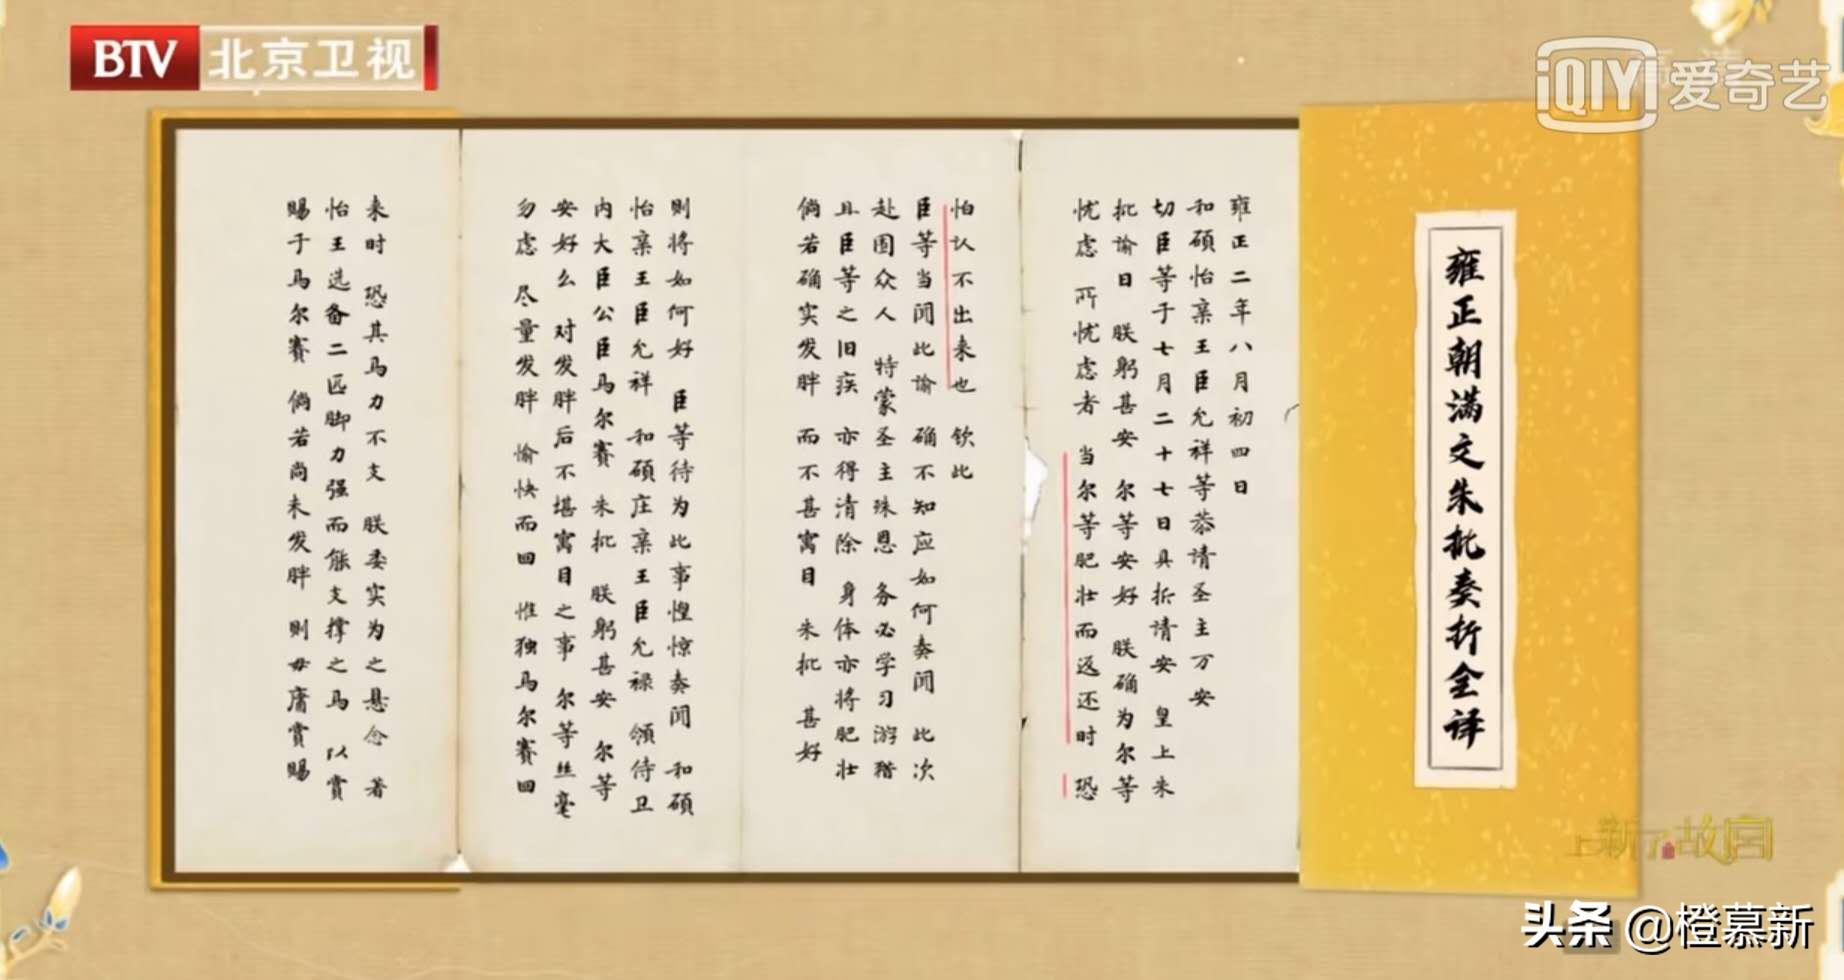 BTV 北京卫视
iQIYI 爱奇艺
雍正朝满文朱批奏折全译
雍正二年八月初四日
和硕怡亲王臣允祥等恭请圣主万安
切臣等于七月二十七日具折请安 皇上朱
批谕曰 朕躬甚安 尔等安好 朕确为尔等
忧虑 所忧虑者 当尔等肥壮而返还时 恐
怕认不出来也 钦此
臣等当闻此谕 确不知应如何奏闻 此次
赴围众人 特蒙圣主殊恩 务必学习游猎
且臣等之旧疾 亦得清除 身体亦将肥壮
倘若确实发胖 而不甚寓目 朱批 甚好
则将如何好 臣等待为此事惶惊奏闻 和硕
怡亲王臣允祥 和硕庄亲王臣允禄 领侍卫
内大臣公臣马尔赛 朱批 朕躬甚安 尔等
安好么 对发胖后不堪寓目之事 尔等丝毫
勿虑 尽量发胖 愉快而回 惟独马尔赛回
来时 恐其马力不支 朕委实为之悬念 著
怡王选备二匹脚力强而能支撑之马 以赏
赐于马尔赛 倘若尚未发胖 则毋庸赏赐
上新了故宫
头条 @橙慕新